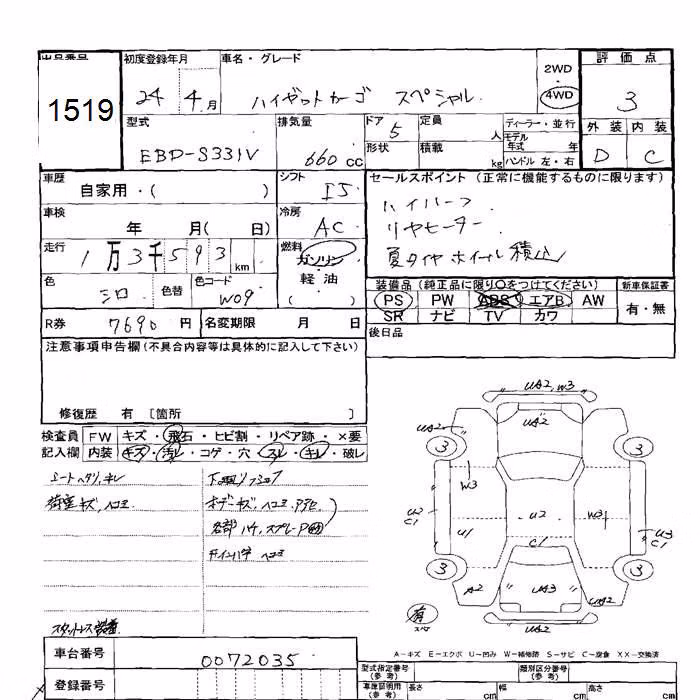 出品番号 初度登録年月 車名・グレード 2WD 4WD 評価点
1519 24 4月 ハイゼットカーゴ スペシャル 3
型式 排気量 ドア 5 定員 人 ディーラー・並行 外装 内装
モデル年式 年
EBD-S331V 660cc 形状 積載 kg ハンドル 左・右 D C
車歴 自家用・( ) シフト I5 セールスポイント (正常に機能するものに限ります)
車検 年 月( 日) 冷房 AC ハイルーフ
リヤヒーター
走行 1万3千593km 燃料 ガソリン・軽油( ) 夏タイヤ ホイール積込
色 シロ 色替 色コード W09 装備品 (純正品に限り○をつけてください) 新車保証書
PS PW ABS エアB AW 有・無
SR ナビ TV カワ
R券 7690円 名変期限 月 日 後日品
注意事項申告欄(不具合内容等は具体的に記入して下さい)
修復歴 有 [箇所 ]
検査員 FW キズ・飛石・ヒビ割・リペア跡・×要
記入欄 内装 キズ・汚レ・コゲ・穴・スレ・キレ・破レ
シートヘタリ、キレ
荷室キズ、ヘコミ
ボデーキズ、ヘコミ
各部ハケ、スプレーP
インパネ ヘコミ
スタットレス装着
UA2, W3
UA2
UA2
3 3
W3
U2
C1
U1
U2
W3
U3
C1
C1
3 3
A2 UA3 UA2
有
UA2
A-キズ E-エクボ U-凹み W-補修跡 S-サビ C-腐食 XX-交換済
車台番号 0072035
登録番号
型式指定番号(参考) 類別区分番号(参考)
車庫証明用(参考) 長さ cm 幅 cm 高さ cm